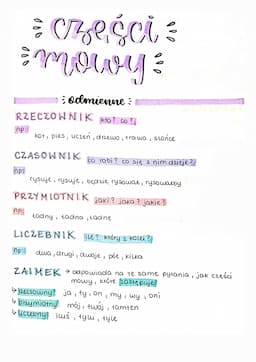 części
mowy:
odmienne
RZECZOWNIK kto? co?
np:
kot, pies, uczeń, drzewo, trawa, słońce
CZASOWNIK co robi? co się z nim dzieje?
np:
rysuje, rysuję, będzie rysował, rysowałby
PRZYMIOTNIK jaki? jaka? jakie?
np:
ładny, ładna, ładne
LICZEBNIK ile? który z kolei?
np:
dwa, drugi, dwoje, pół, kilka
ZAIMEK → odpowiada na te same pytania, jak części
mowy, które zastępuje
rzeczowny: ja, ty, on, my, wy, oni
przymiotny: mój, twój, tamten
liczebny: tyle